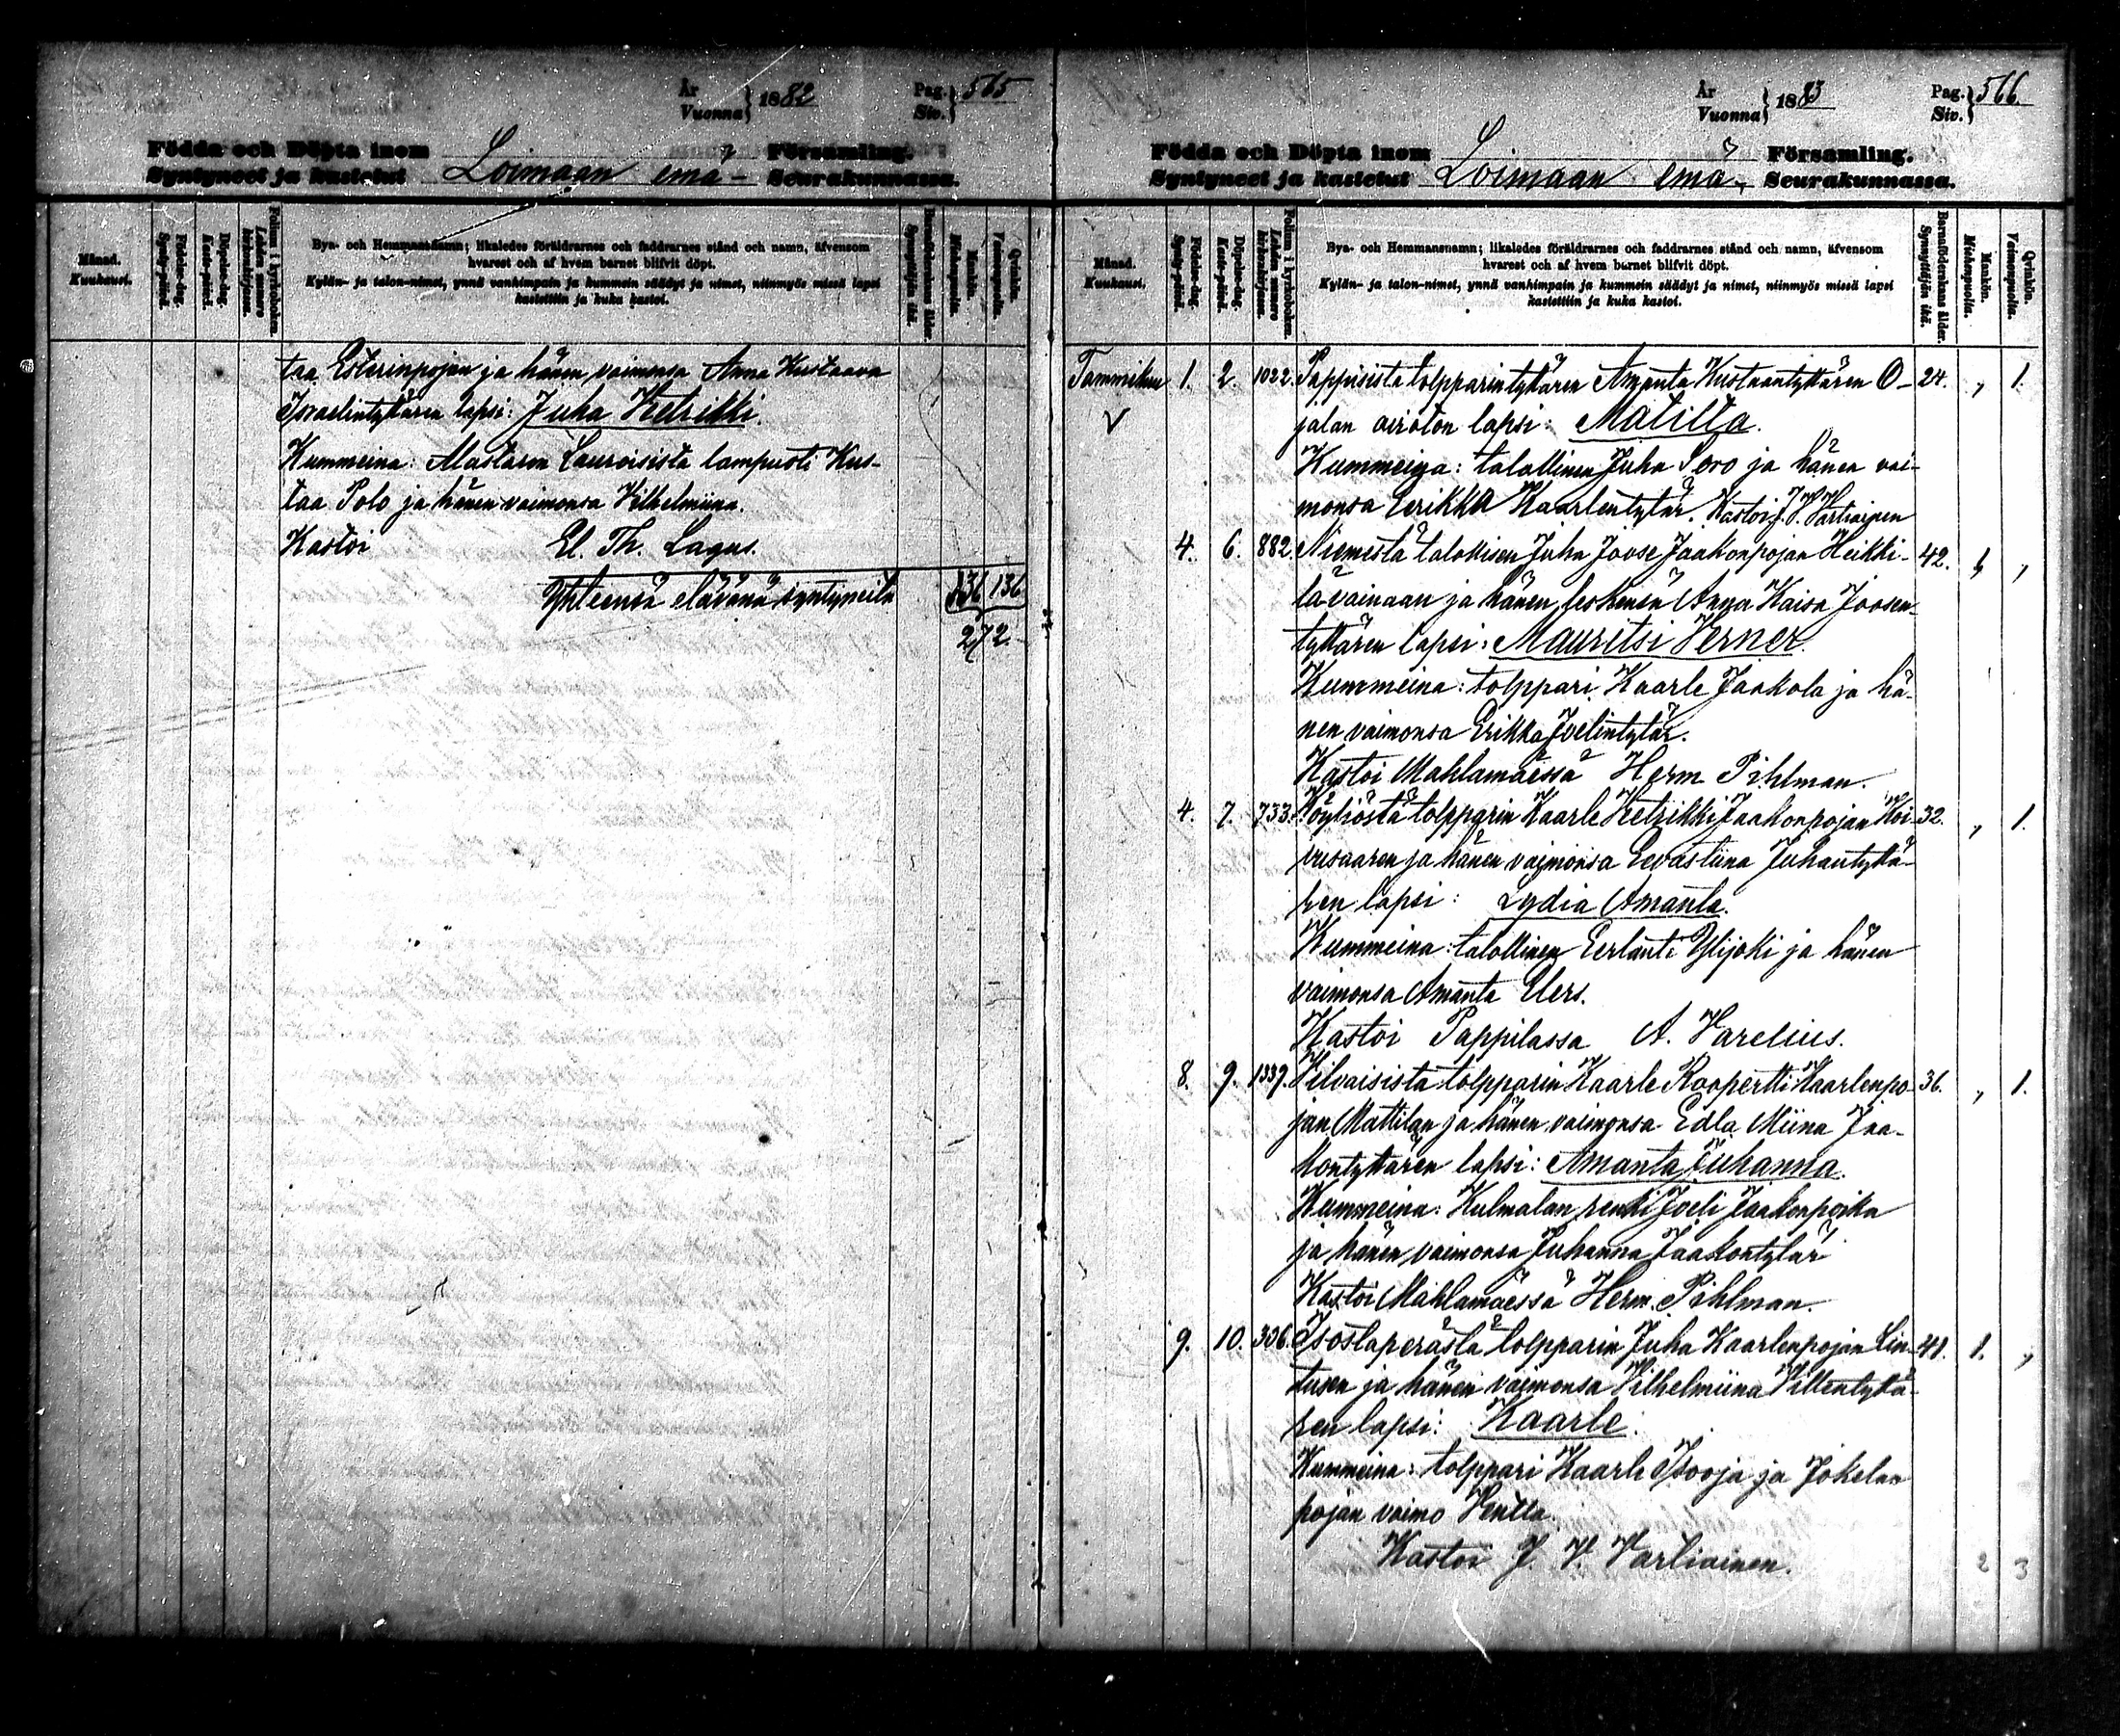 År
Vuonna } 1882 Pag.
Siv. } 565
Födda och Döpta inom
Syntyneet ja kastetut Loimaan emä- Församling.
Seurakunnassa.
Månad.
Kuukausi.
Födelse-dag.
Synty-päivä.
Döpelse-dag.
Kaste-päivä.
Folium i kyrkoboken.
Lehden numero kirkonkirjassa.
Bya- och Hemmansnamn; likaledes föräldrarnes och faddrarnes stånd och namn, äfvensom
hvarest och af hvem barnet blifvit döpt.
Kylän- ja talon-nimet, ynnä vanhimpain ja kummein säädyt ja nimet, niinmyös missä lapsi
kastettiin ja kuka kastoi.
Barnföderskans ålder.
Synnyttäjän ikä.
Mankön.
Miehenpuolia.
Qvinkön.
Vaimonpuolia.
taa Esterinpojan ja hänen vaimonsa Anna Kustaava
Israelintyttären lapsi: Juha Ketrikki.
Kummeina: Alastaron Lauroisista lampuoti Kus-
taa Polo ja hänen vaimonsa Vilhelmiina.
Kastoi El. Th. Lagus.
Yhteensä elävänä syntyneitä 136 136
272
År
Vuonna } 1883 Pag.
Siv. } 566.
Födda och Döpta inom
Syntyneet ja kastetut Loimaan emä- Församling.
Seurakunnassa.
Månad.
Kuukausi.
Födelse-dag.
Synty-päivä.
Döpelse-dag.
Kaste-päivä.
Folium i kyrkoboken.
Lehden numero kirkonkirjassa.
Bya- och Hemmansnamn; likaledes föräldrarnes och faddrarnes stånd och namn, äfvensom
hvarest och af hvem barnet blifvit döpt.
Kylän- ja talon-nimet, ynnä vanhimpain ja kummein säädyt ja nimet, niinmyös missä lapsi
kastettiin ja kuka kastoi.
Barnföderskans ålder.
Synnyttäjän ikä.
Mankön.
Miehenpuolia.
Qvinkön.
Vaimonpuolia.
Tammikuu 1. 2. 1022. Pappisista tolpparintyttären Amanta Kustaantyttären O- 24. , 1.
jalan avioton lapsi: Matilta.
Kummeina: talollinen Juha Soro ja hänen vai-
monsa Eerikka Kaarlentytär. Kastoi J. V. Vartiainen
4. 6. 882. Niemestä talollisen Juha Joose Jaakonpojan Heikki- 42. 1, ,
lävainaan ja hänen leskensä Anna Kaisa Joosen-
tyttären lapsi: Mauritsi Verner.
Kummeina: tolppari Kaarle Jaakola ja hä-
nen vaimonsa Erikka Joelintytär.
Kastoi Mahlamäessä Herm. Pihlman.
4. 7. 733. Köyliöstä tolpparin Kaarle Ketrikki Jaakonpojan Koi- 32. , 1.
vusaaren ja hänen vaimonsa Eevastiina Juhantyttä-
ren lapsi: Lydia Amanta.
Kummeina: talollinen Eerlanti Ylijoki ja hänen
vaimonsa Amanta Uers.
Kastoi Pappilassa A. Varelius.
8. 9. 1339. Vilvaisista tolpparin Kaarle Roopertti Kaarlenpo- 36. , 1.
jan Mattilan ja hänen vaimonsa Edla Miina Jaa-
kontyttären lapsi: Amanta Juhanna.
Kummeina: Kulmalan renki Joeli Jaakonpoika
ja hänen vaimonsa Juhanna Jaakontytär
Kastoi Mahlamäessä Herm. Pihlman.
9. 10. 306. Isostaperästä tolpparin Juha Kaarlenpojan Lin- 41. 1. ,
tusen ja hänen vaimonsa Vilhelmiina Villentyttä-
ren lapsi: Kaarle.
Kummeina: tolppari Kaarle Isooja ja Jokelan
pojan vaimo Ventla.
Kastoi J. V. Vartiainen.
2 3